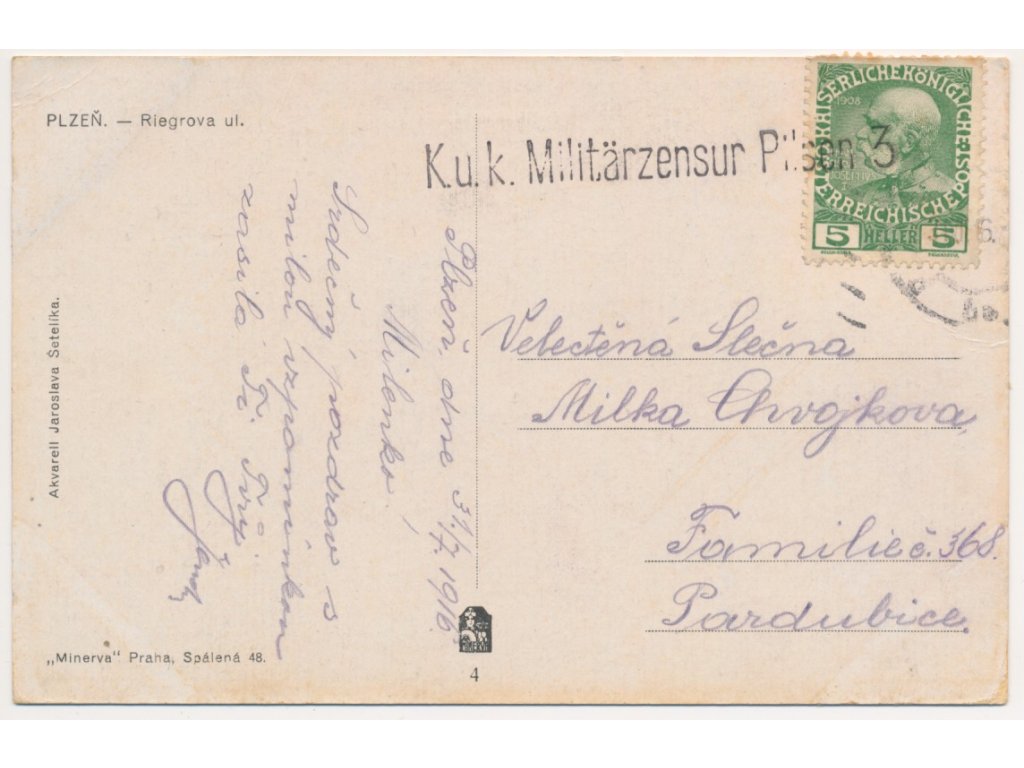 PLZEŇ. — Riegrova ul.
K.u.k. Militärzensur Pilsen 3
KAISERLICHE KÖNIGLICHE
ÖSTERREICHISCHE POST
1908
5 HELLER 5
6.
Plzeň, dne 31/7. 1916.
Milenko!
Srdečný pozdrav s
milou vzpomínkou
zasílá Ti Tvůj
Velectěná Slečna
Milka Chvojkova,
Familie č. 368.
Pardubice.
Akvarell Jaroslava Šetelíka.
„Minerva“ Praha, Spálená 48.
4